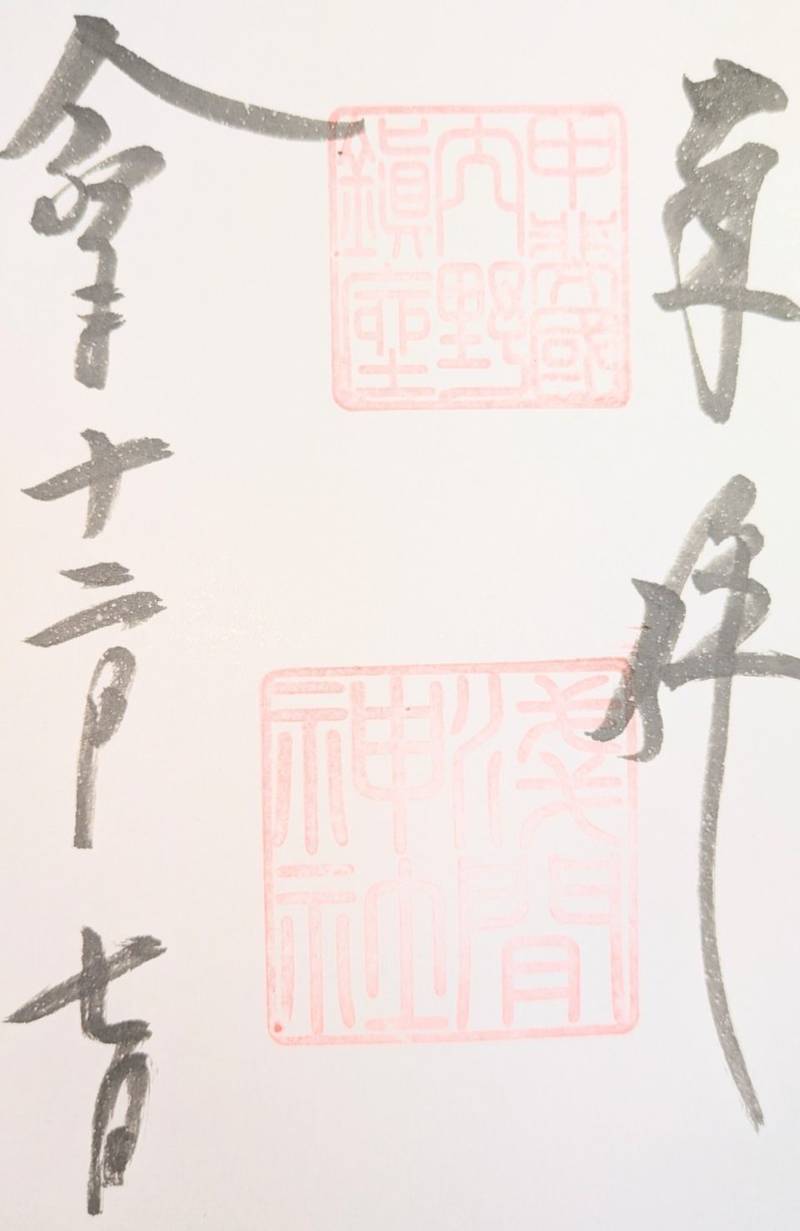 奉拝
甲斐國
内野
鎮座
淺間
神社
令和年十二月七日